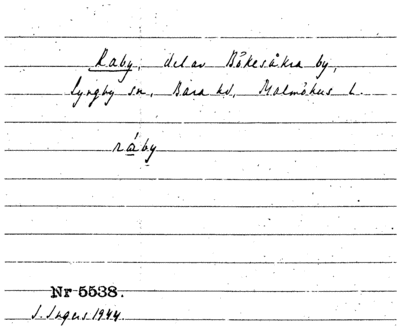 Raby, del av Bökesåkra by,
Lyngby sn, Bara hd, Malmöhus l.
råby
Nr 5538.
I. Ingers 1944